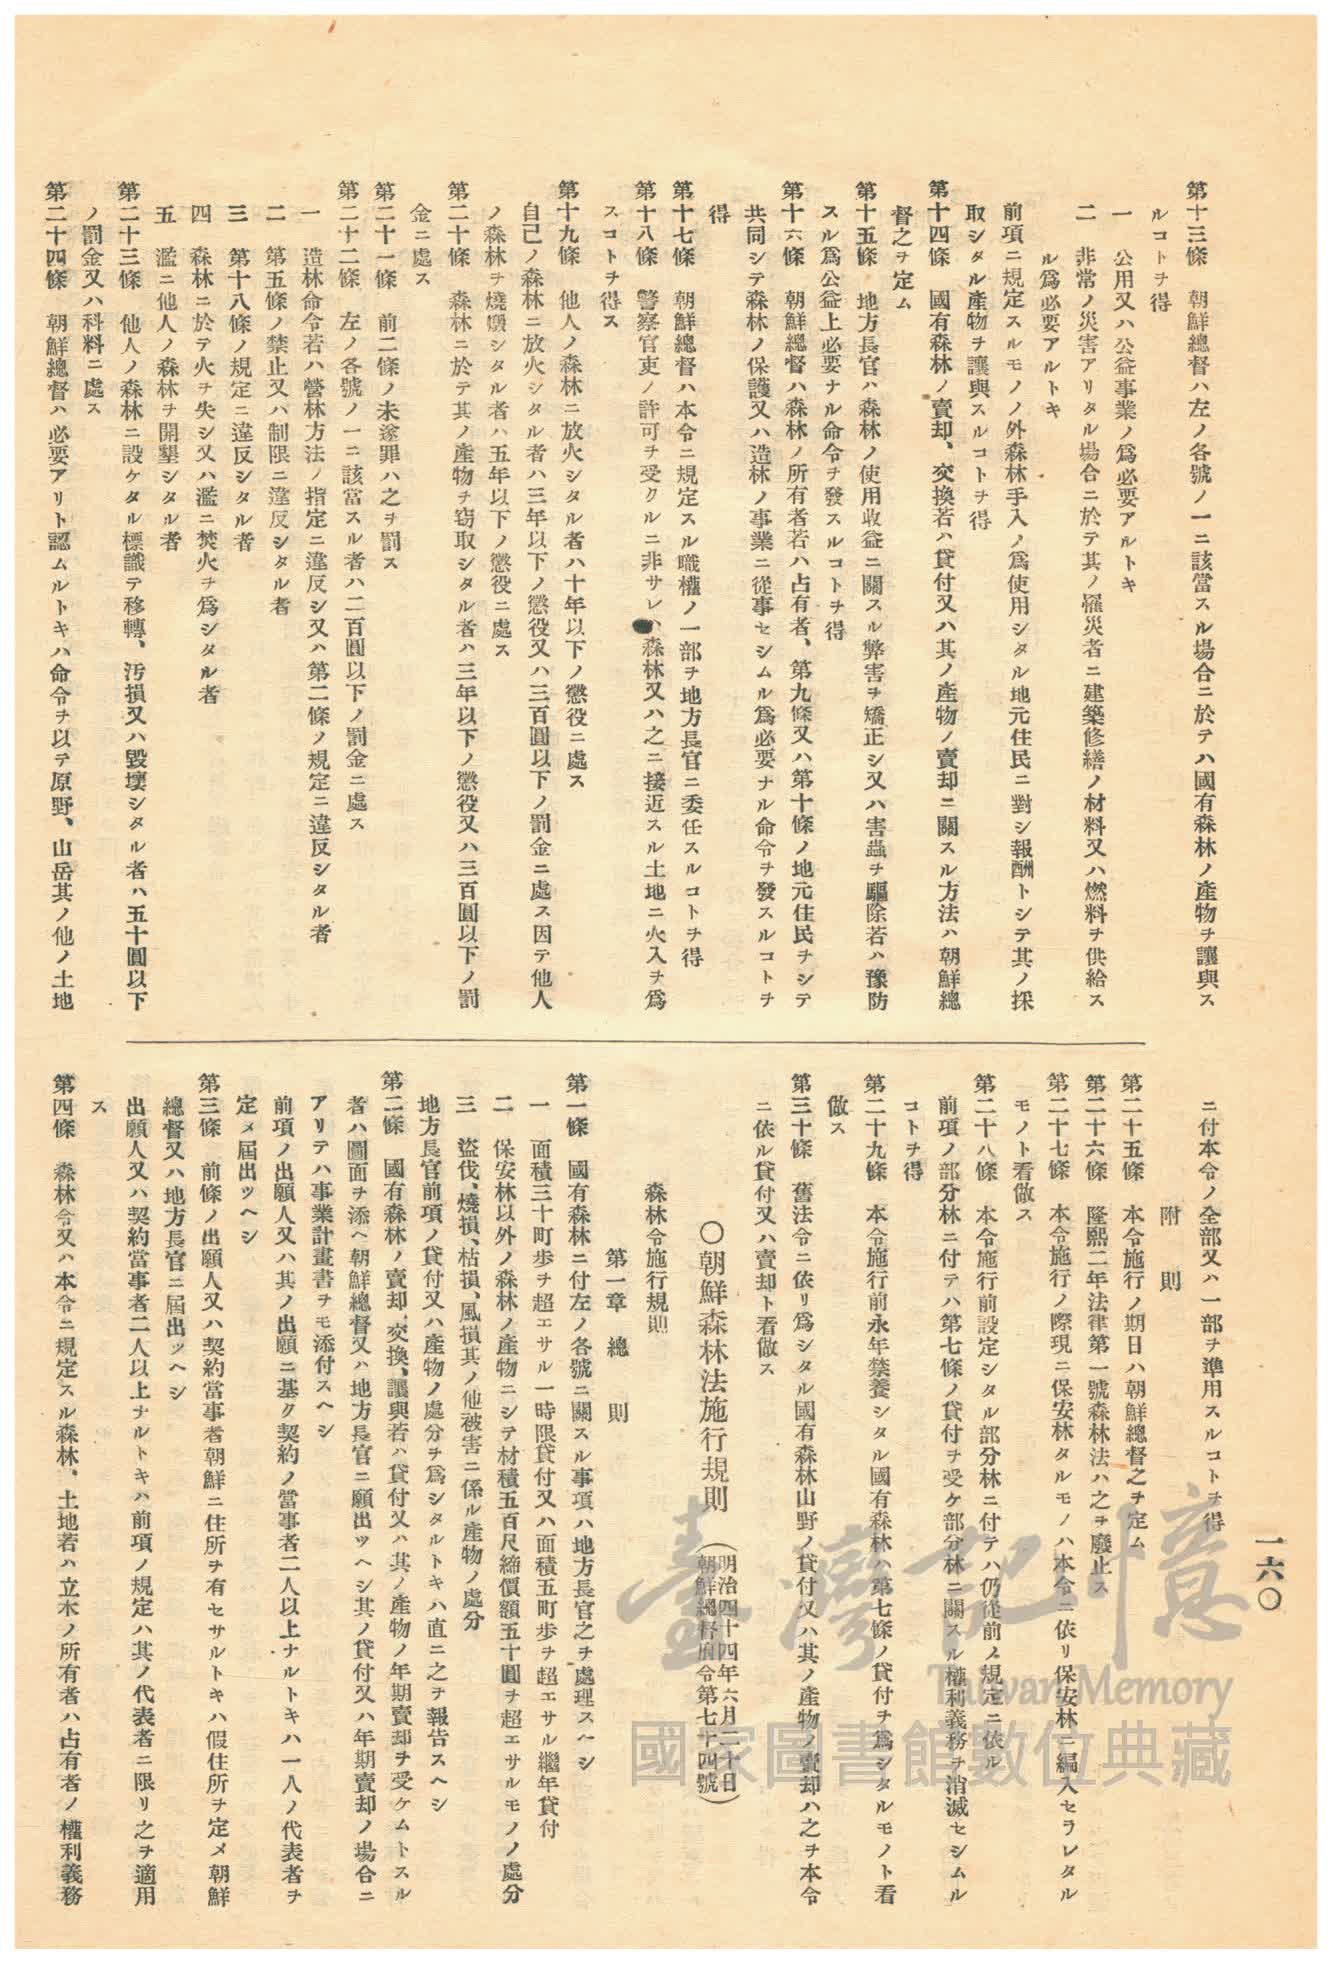 一六〇
第十三條　朝鮮總督ハ左ノ各號ノ一ニ該當スル場合ニ於テハ國有森林ノ產物ヲ讓與ス
ルコトヲ得
一　公用又ハ公益事業ノ爲必要アルトキ
二　非常ノ災害アリタル場合ニ於テ其ノ罹災者ニ建築修繕ノ材料又ハ燃料ヲ供給ス
ル爲必要アルトキ
前項ニ規定スルモノノ外森林手入ノ爲使用シタル地元住民ニ對シ報酬トシテ其ノ採
取シタル產物ヲ讓與スルコトヲ得
第十四條　國有森林ノ賣却、交換若ハ貸付又ハ其ノ產物ノ賣却ニ關スル方法ハ朝鮮總
督之ヲ定ム
第十五條　地方長官ハ森林ノ使用收益ニ關スル弊害ヲ矯正シ又ハ害蟲ヲ驅除若ハ豫防
スル爲公益上必要ナル命令ヲ發スルコトヲ得
第十六條　朝鮮總督ハ森林ノ所有者若ハ占有者、第九條又ハ第十條ノ地元住民ヲシテ
共同シテ森林ノ保護又ハ造林ノ事業ニ從事セシムル爲必要ナル命令ヲ發スルコトヲ
得
第十七條　朝鮮總督ハ本令ニ規定スル職權ノ一部ヲ地方長官ニ委任スルコトヲ得
第十八條　警察官吏ノ許可ヲ受クルニ非サレハ森林又ハ之ニ接近スル土地ニ火入ヲ爲
スコトヲ得ス
第十九條　他人ノ森林ニ放火シタル者ハ十年以下ノ懲役ニ處ス
自己ノ森林ニ放火シタル者ハ三年以下ノ懲役又ハ三百圓以下ノ罰金ニ處ス因テ他人
ノ森林ヲ燒燬シタル者ハ五年以下ノ懲役ニ處ス
第二十條　森林ニ於テ其ノ產物ヲ窃取シタル者ハ三年以下ノ懲役又ハ三百圓以下ノ罰
金ニ處ス
第二十一條　前二條ノ未遂罪ハ之ヲ罰ス
第二十二條　左ノ各號ノ一ニ該當スル者ハ二百圓以下ノ罰金ニ處ス
一　造林命令若ハ營林方法ノ指定ニ違反シ又ハ第二條ノ規定ニ違反シタル者
二　第五條ノ禁止又ハ制限ニ違反シタル者
三　第十八條ノ規定ニ違反シタル者
四　森林ニ於テ火ヲ失シ又ハ濫ニ焚火ヲ爲シタル者
五　濫ニ他人ノ森林ヲ開墾シタル者
第二十三條　他人ノ森林ニ設ケタル標識ヲ移轉、汚損又ハ毀壞シタル者ハ五十圓以下
ノ罰金又ハ科料ニ處ス
第二十四條　朝鮮總督ハ必要アリト認ムルトキハ命令ヲ以テ原野、山岳其ノ他ノ土地
ニ付本令ノ全部又ハ一部ヲ準用スルコトヲ得
附　則
第二十五條　本令施行ノ期日ハ朝鮮總督之ヲ定ム
第二十六條　隆熙二年法律第一號森林法ハ之ヲ廢止ス
第二十七條　本令施行ノ際現ニ保安林タルモノハ本令ニ依リ保安林ニ編入セラレタル
モノト看做ス
第二十八條　本令施行前設定シタル部分林ニ付テハ仍從前ノ規定ニ依ル
前項ノ部分林ニ付テハ第七條ノ貸付ヲ受ケ部分林ニ關スル權利義務ヲ消滅セシムル
コトヲ得
第二十九條　本令施行前永年禁養シタル國有森林ハ第七條ノ貸付ヲ爲シタルモノト看
做ス
第三十條　舊法令ニ依リ爲シタル國有森林山野ノ貸付又ハ其ノ產物ノ賣却ハ之ヲ本令
ニ依ル貸付又ハ賣却ト看做ス
〇朝鮮森林法施行規則（明治四十四年六月二十日
朝鮮總督府令第七十四號）
森林令施行規則
第一章　總　則
第一條　國有森林ニ付左ノ各號ニ關スル事項ハ地方長官之ヲ處理スヘシ
一　面積三十町步ヲ超エサル一時限貸付又ハ面積五町步ヲ超エサル繼年貸付
二　保安林以外ノ森林ノ產物ニシテ材積五百尺締價額五十圓ヲ超エサルモノノ處分
三　盜伐、燒損、枯損、風損其ノ他被害ニ係ル產物ノ處分
地方長官前項ノ貸付又ハ產物ノ處分ヲ爲シタルトキハ直ニ之ヲ報告スヘシ
第二條　國有森林ノ賣却、交換、讓與若ハ貸付又ハ其ノ產物ノ年期賣却ヲ受ケムトスル
者ハ圖面ヲ添ヘ朝鮮總督又ハ地方長官ニ願出ツヘシ其ノ貸付又ハ年期賣却ノ場合ニ
アリテハ事業計畫書ヲモ添付スヘシ
前項ノ出願人又ハ其ノ出願ニ基ク契約ノ當事者二人以上ナルトキハ一人ノ代表者ヲ
定メ屆出ツヘシ
第三條　前條ノ出願人又ハ契約當事者朝鮮ニ住所ヲ有セサルトキハ假住所ヲ定メ朝鮮
總督又ハ地方長官ニ屆出ツヘシ
出願人又ハ契約當事者二人以上ナルトキハ前項ノ規定ハ其ノ代表者ニ限リ之ヲ適用
ス
第四條　森林令又ハ本令ニ規定スル森林、土地若ハ立木ノ所有者ハ占有者ノ權利義務
臺灣記憶
Taiwan Memory
國家圖書館數位典藏